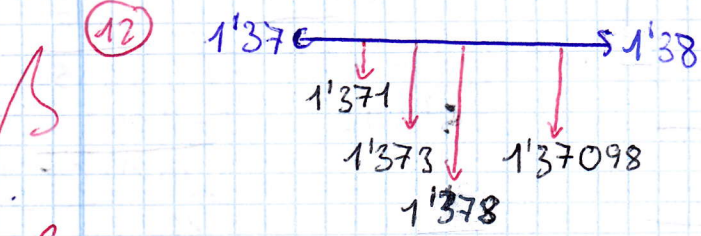 12 1'37 1'38
1'371
1'373 1'37098
1'378